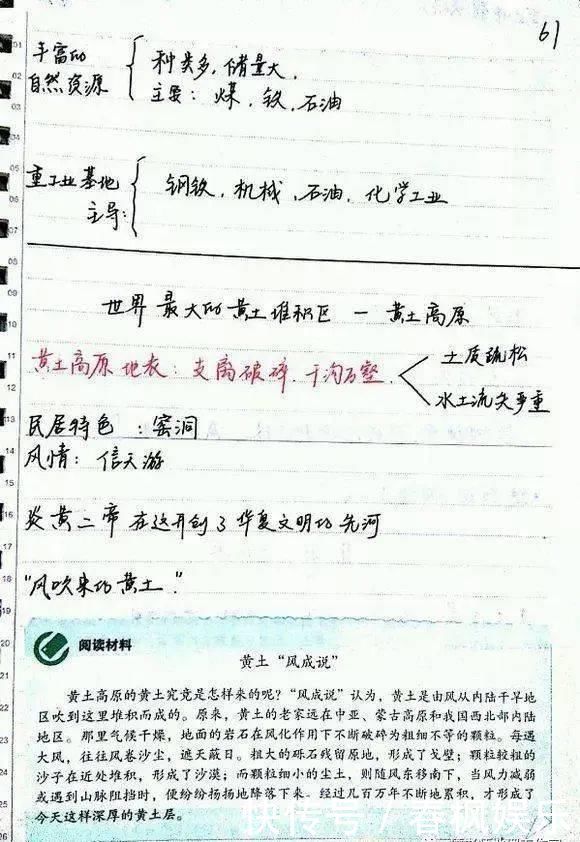 61
丰富的
自然资源
种类多，储量大，
主要：煤，铁，石油
重工业基地
主导：
钢铁，机械，石油，化学工业
世界最大的黄土堆积区 — 黄土高原
黄土高原地表：支离破碎，千沟万壑
土质疏松
水土流失严重
民居特色：窑洞
风情：信天游
炎黄二帝在这开创了华夏文明的先河
"风吹来的黄土"
阅读材料
黄土“风成说”
黄土高原的黄土究竟是怎样来的呢？“风成说”认为，黄土是由风从内陆干旱地
区吹到这里堆积而成的。原来，黄土的老家远在中亚、蒙古高原和我国西北部内陆
地区。那里气候干燥，地面的岩石在风化作用下不断破碎为粗细不等的颗粒。每遇
大风，往往风卷沙尘，遮天蔽日。粗大的砾石残留原地，形成了戈壁；颗粒较粗的
沙子在近处堆积，形成了沙漠；而颗粒细小的尘土，则随风东移南下，当风力减弱
或遇到山脉阻挡时，便纷纷扬扬地降落下来。经过几百万年不断地累积，才形成了
今天这样深厚的黄土层。
快传号 / 春枫娱乐